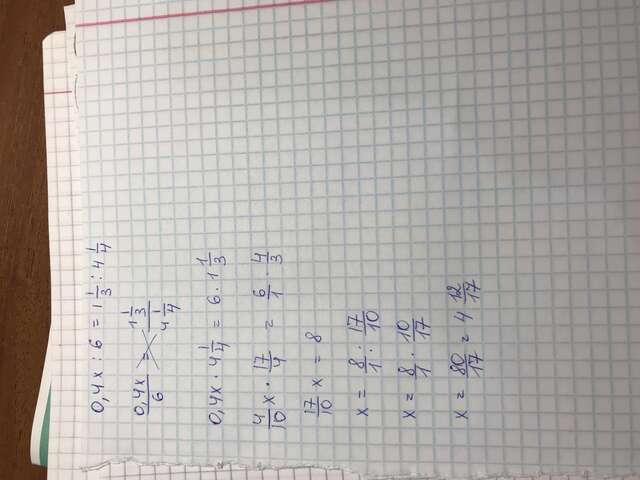 0,4x : 6 = 1 1/3 : 4 1/4
0,4x/6 = 1 1/3 / 4 1/4
0,4x · 4 1/4 = 6 · 1 1/3
4/10 x · 17/4 = 6/1 · 4/3
17/10 x = 8
x = 8/1 : 17/10
x = 8/1 · 10/17
x = 80/17 = 4 12/17